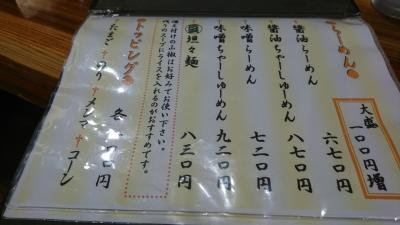 らーめん
大盛
一〇〇円増
醤油らーめん 六七〇円
醤油ちゃーしゅーめん 八七〇円
味噌らーめん 七二〇円
味噌ちゃーしゅーめん 九二〇円
坦々麺 八三〇円
備え付けの山椒はお好みでお使い下さい。
残りのスープにライスを入れるのがおすすめです。
トッピング
たまご のり メンマ コーン
各一〇〇円